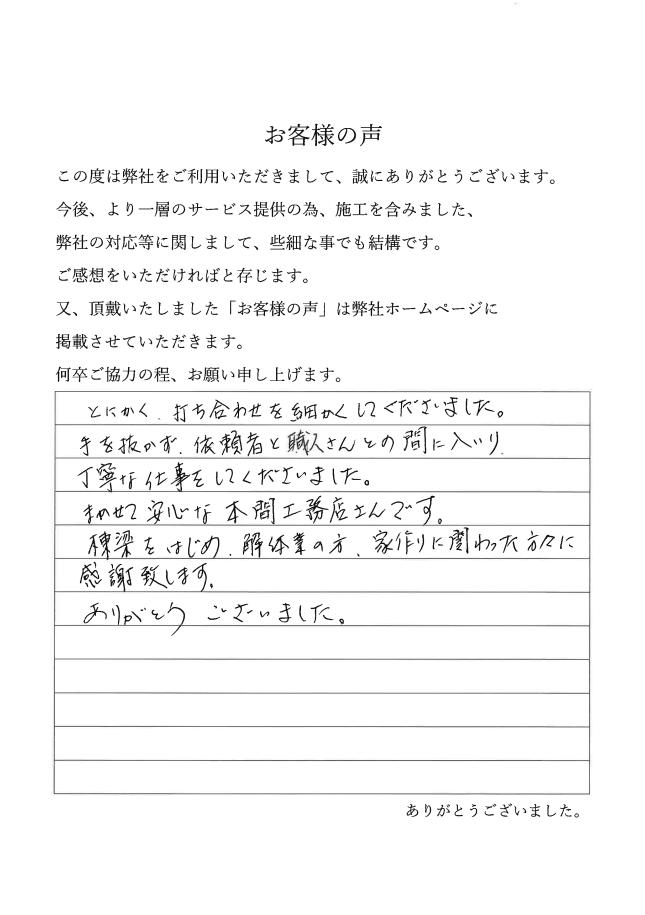 お客様の声
この度は弊社をご利用いただきまして、誠にありがとうございます。
今後、より一層のサービス提供の為、施工を含みました、
弊社の対応等に関しまして、些細な事でも結構です。
ご感想をいただければと存じます。
又、頂戴いたしました「お客様の声」は弊社ホームページに
掲載させていただきます。
何卒ご協力の程、お願い申し上げます。
とにかく、打ち合わせを細かくしてくださいました。
手を抜かず、依頼者と職人さんとの間に入いり、
丁寧な仕事をしてくださいました。
まかせて安心な本間工務店さんです。
棟梁をはじめ、解体業の方、家作りに関わった方々に
感謝致します。
ありがとうございました。
ありがとうございました。